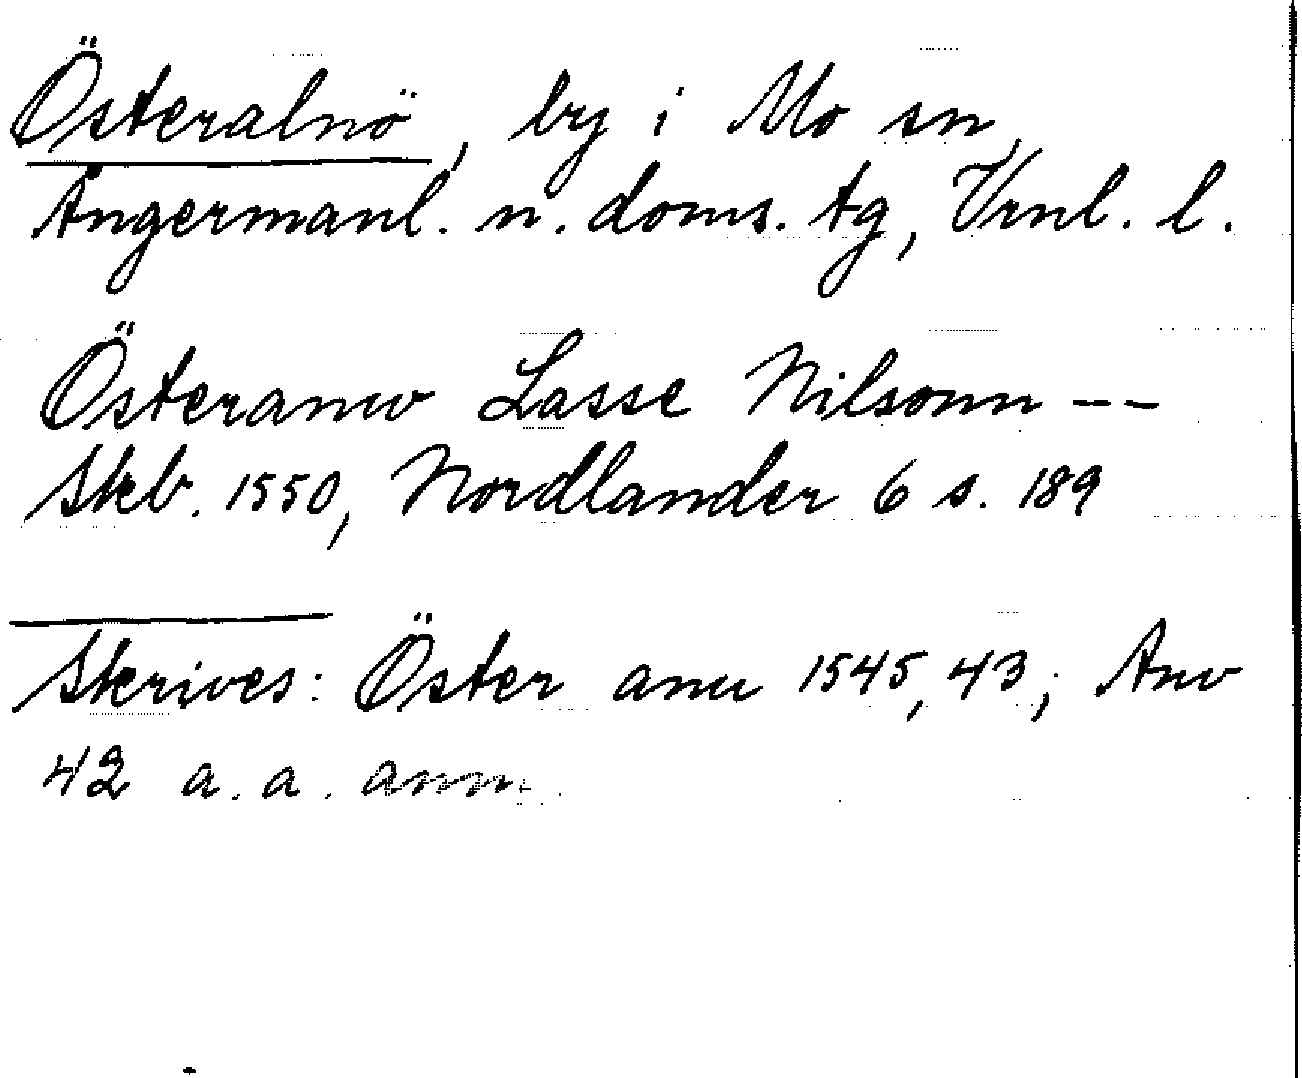 Österalnö, by i Mo sn,
Ångermanl. n. doms. tg, Vrnl. l.
Österanw Lasse Nilsonn --
Skb. 1550, Nordlander 6 s. 189
Skrives: Öster anu 1545, 43; Anw
42 a. a. anm.